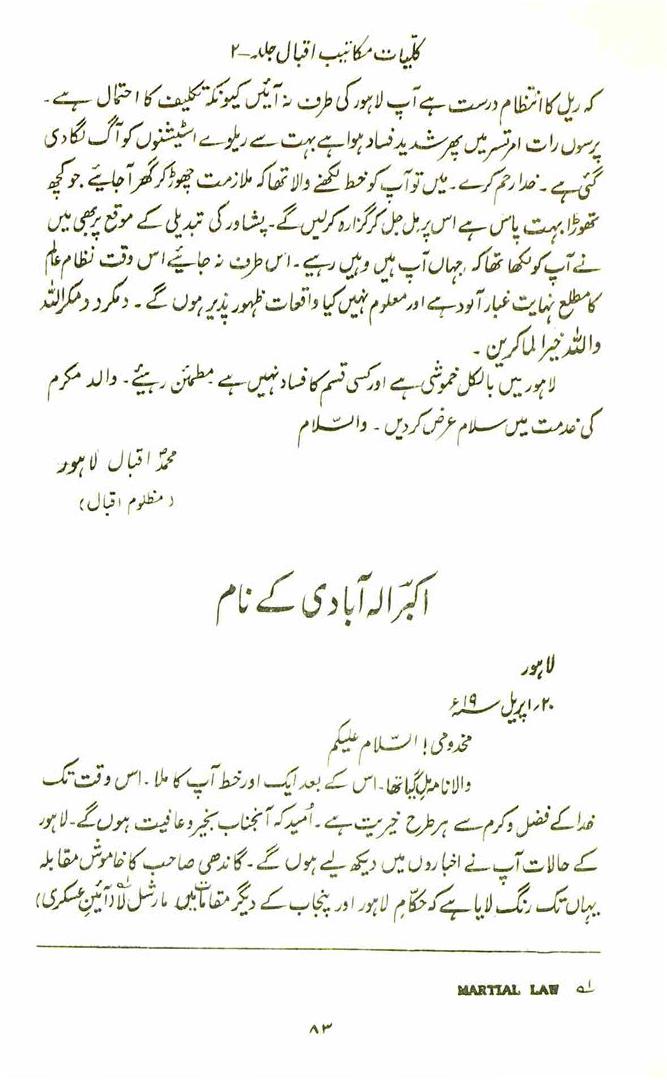 کلیات مکاتیب اقبال جلد۔۲
کہ ریل کا انتظام درست ہے آپ لاہور کی طرف نہ آئیں کیونکہ تکلیف کا احتمال ہے۔
پرسوں رات امرتسر میں پھر شدید فساد ہوا ہے بہت سے ریلوے اسٹیشنوں کو آگ لگا دی
گئی ہے۔ خدا رحم کرے۔ میں تو آپ کو خط لکھنے والا تھا کہ ملازمت چھوڑ کر گھر آجایئے جو کچھ
تھوڑا بہت پاس ہے اس پر مل جل کر گزارہ کرلیں گے۔ پشاور کی تبدیلی کے موقع پر بھی میں
نے آپ کو لکھا تھا کہ جہاں آپ ہیں وہیں رہیے۔ اس طرف نہ جائیے اس وقت نظام عالم
کا مطلع نہایت غبار آلود ہے اور معلوم نہیں کیا واقعات ظہور پذیر ہوں گے۔ ومکرو ومکراللہ
واللہ خیرا لماکرین۔
لاہور میں بالکل خموشی ہے اور کسی قسم کا فساد نہیں ہے مطمئن رہیئے۔ والد مکرم
کی خدمت میں سلام عرض کر دیں۔ والسّلام
محمدؐ اقبال لاہور
(مظلوم اقبال)
اکبرؔ الہ آبادی کے نام
لاہور
۲۰؍اپریل ۱۹ء
مخدومی! السّلام علیکم
والا نامہ مل گیا تھا۔ اس کے بعد ایک اور خط آپ کا ملا۔ اس وقت تک
خدا کے فضل و کرم سے ہر طرح خیریت ہے۔ اُمید کہ آنجناب بخیر و عافیت ہوں گے۔ لاہور
کے حالات آپ نے اخباروں میں دیکھ لیے ہوں گے۔ گاندھی صاحب کا خاموش مقابلہ
یہاں تک رنگ لایا ہے کہ حکّام لاہور اور پنجاب کے دیگر مقامات میں مارشل لا (آئین عسکری)
لہ MARTIAL LAW
۸۳